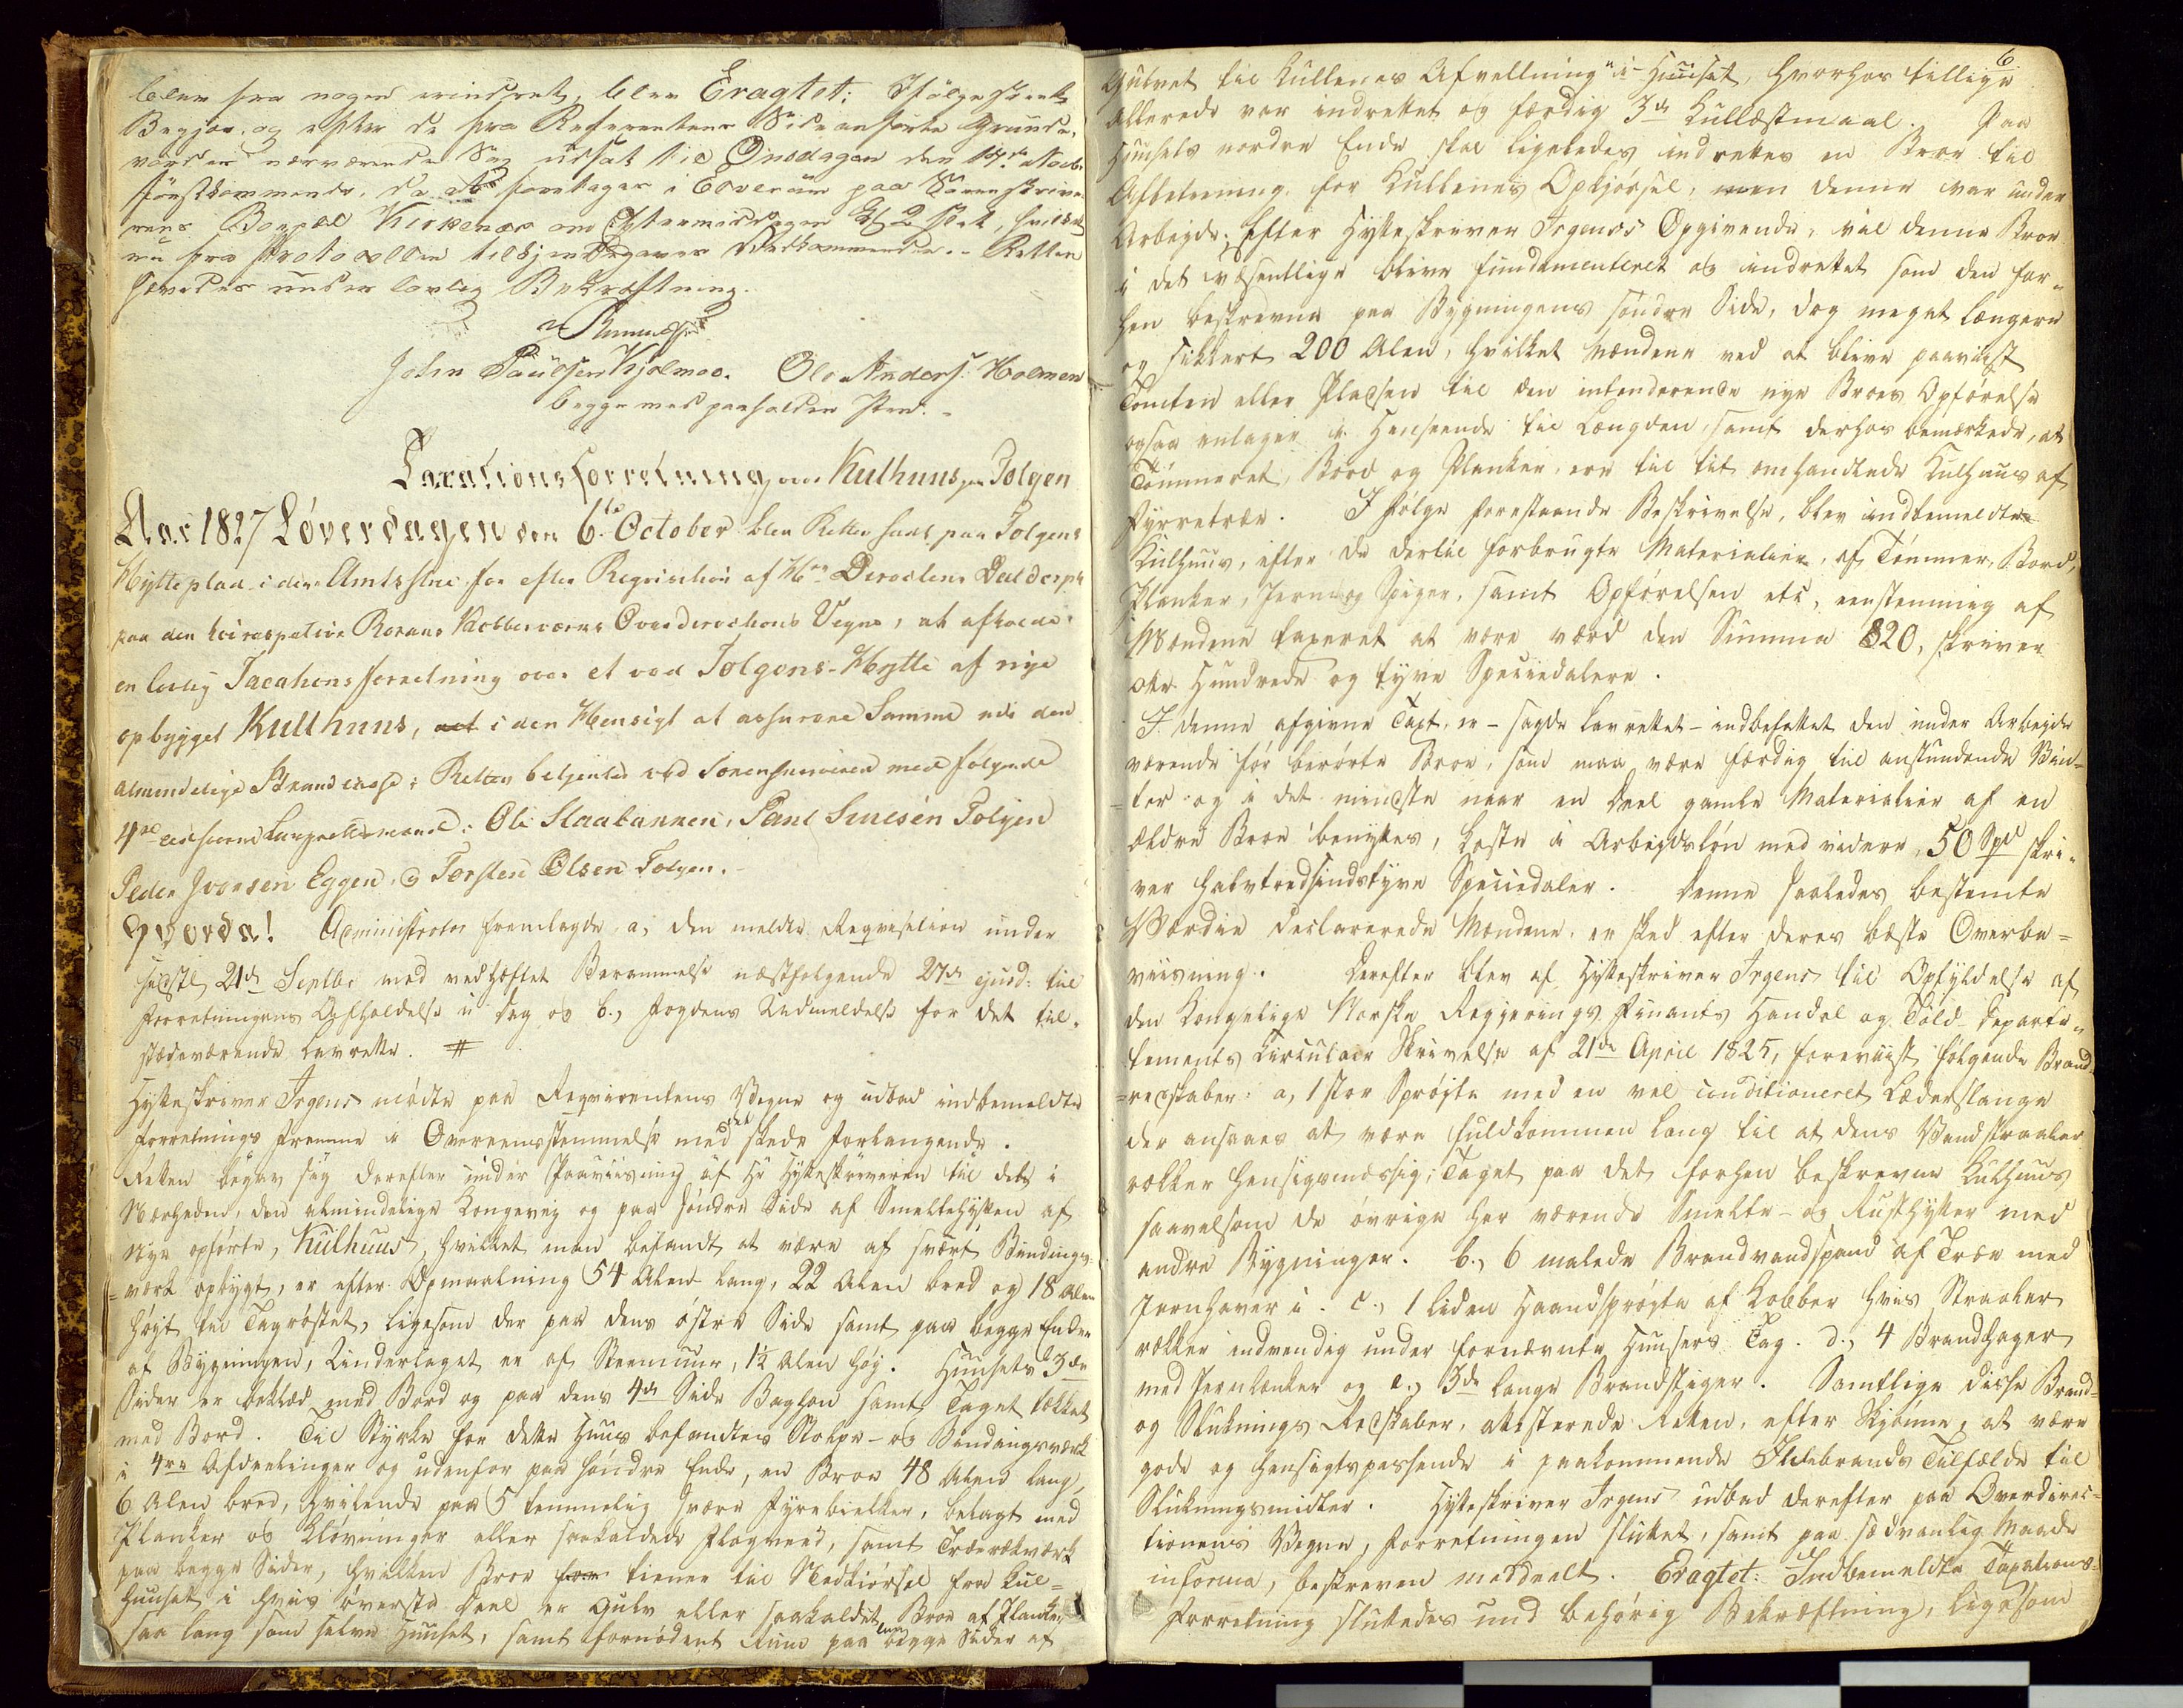 blev fra nogen erindret, blev Eragtet: Ifølge skeete
Begjær, og efter de fra Referentens Side anførte Grunde,
vorder nærværende Sag udsat til Onsdagen den 17de Octobr
førstkommende, da den foretages i Eoverum paa Sorenskrive-
rens Bopæl Kirkenær om Eftermiddagen Kl 2 slet, hvilket
nu fra Protocollen tilkjendegaves Vedkommende. - Retten
hævedes under lovlig Bekræftning.
John Paulsen Kjølmoe. Ole Anders. Holmen
begge med paaholden Pen. -
Taxationsforretning over Kulhuus paa Tolgen
Aar 1827 Løverdagen den 6te October blev Retten sadt paa Tolgens
Hytteplads i dens Amtsstue for efter Requisition af Hr. Directeur
paa den heirespective Røraas Kobberværks Overdirections Vegne, at afholde
en lovlig Taxationsforretning over et ved Tolgens-Hytte af nye
opbygget Kulthuus, i den Hensigt at assurere Samme udi den
almindelige Brandcasse; Retten betjentes ved Sorenskriveren med følgende
4re eedsvorne Laugrettesmænd: Ole Staabakken, Paul Tolgen
Peder Iversen Eggen, og Torsten Olsen Tolgen. -
Hvorda! Administrator fremlagde a, den meldte Reqvisition under
sidstl. 21de Septbr med vedhæftet Berammelse næstfølgende 27de ejusd: til
Forretningens Afholdelse i Dag og b., Fogdens Udmeldelse for det til-
stædeværende Lavrette. #
Hytteskriver Irgens mødte paa Reqvirentens Vegne og udbad indbemeldte
Forretnings Fremme i Overeensstemmelse med det skede Forlangende.
Retten begav sig derefter under Paaviisning af Hr Hytteskriveren til dets i
Nærheden, den almindelige Kongevej og paa søndre Side af Smeltehytten af
Nye opførte, Kulhuus, hvilket man befandt at være af svært Bindings-
=værk opbygt, er efter Opmaalning 54 Alen lang, 22 Alen bred og 18 Alen
høyt til Tagrøstet, ligesom der paa dens østre Side samt paa begge Ender
af Bygningen, Underlaget er af Steenmuur, 1½ Alen høy. Huusets 3de
Sider er beklæd med Bord og paa dens 4de Side Baghon samt Taget tækket
med Bord. Til Styrke for dette Huus befandtes Stolpe- og Bindingsværk
i 4re Afdeelinger og udenfor paa søndre Ende, en Broe 48 Alen lang,
6 Alen bred, hvilende paa 5 temmelig svære Fyrebielker, belagt med
Planker og Kløvninger eller saakaldede Flagveed, samt Trærækværk
paa begge Sider, hvilken Broe tiener til Nedkiørsel fra Kul-
huuset i hvis øverste Deel er Gulv eller saakaldet Broe af Planker
saa lang som selve Huuset, samt fornødent Rum paa begge Sider af
6
Gulvet til Kullenes Afvellning i Huuset, hvorhos tillige
allerede var indrettet og færdig 3de Kullæstmaal. Paa
Huusets nordre Ende skal ligeledes indrettes en Broe til
Afbetiening for Kullenes Opkjørsel, men denne var under
Arbejde; Efter Hytteskriver Irgens's Opgivende, vil denne Broe
i det væsentlige blive fundamenteret og indrettet som den for-
hen beskrevne paa Bygningens søndre Side, dog meget længere
og sikkert 200 Alen, hvilket Mændene ved at blive paaviist
Tomten eller Pladsen til den intenderende nye Broes Opførelse
ogsaa antager i Henseende til Længden, samt derhos bemærkede, at
Tømmeret, Bord og Planker, ere til tit omhandlede Kulhuus af
Fyrretræe. I følge forestaaende Beskrivelse, blev indbemeldte
Kulhuus, efter de dertil forbrugte Materialier, af Tømmer, Bord,
Planker, Jern og Spiger, samt Opførelsen etc, eenstemmig af
Mændene taxeret at være værd den Summa 820, skriver
otte Hundrede og tyve Speciedalere.
I denne afgivne Taxt, er - sagde Lavrettet - indbefattet den under Arbejde
værende før berørte Broe, som maa være færdig til anstundende Vin-
=ter og i det mindste naar en Deel gamle Materialier af en
ældre Broe benyttes, koste i Arbejdsløn med videre, 50 Spd skri-
ver halvtredsindstyve Speciedaler. Denne saaledes bestemte
Værdie declarerede Mændene er sked efter deres bæste Overbe=
viisning. Derefter blev af Hytteskriver Irgens til Opfyldelse af
den Kongelige Norske Regjerings Finants Handel og Told-Departe-
tements Circulair Skrivelse af 21de April 1825, foreviist følgende Brand-
=redskaber: a, 1 stor Sprøjte med en vel conditioneret Læderslange
der ansaaes at være fuldkommen lang til at dens Vandstraaler
rækker hensigtsmæssig; Taget paa det forhen beskrevne Kulhuus
saavelsom de øvrige her værende Smelte- og Rusthytter med
andre Bygninger. b., 6 malede Brandvandspand af Træe med
Jernhaver i. c., 1 liden Haandsprøjte af Kobber hvis Straaler
rækker indvendig under fornævnte Huusers Tag. d., 4 Brandhager
med Jernlænker og e., 3de lange Brandstiger. Samtlige disse Brand-
og Sluknings Redskaber, attesterede Retten, efter Skjønne, at være
gode og hensigtspassende i paakommende Ildebrands Tilfælde til
Slukningsmidler. Hytteskriver Irgens udbad derefter paa Overdirec-
tionens Vegne, Forretningen sluttet, samt paa sædvanlig Maade
informa, beskreven meddeelt. Eragtet: Indbemeldte Taxations-
Forretning sluttedes und behørig Bekræftning, ligesom